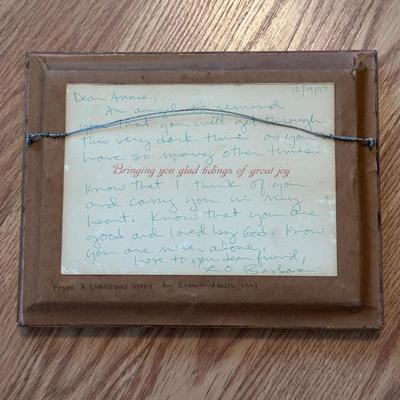 12/19/97
Dear Annie,
An angel to remind
you that you will get through
this very dark time as you
have so many other times.
Bringing you glad tidings of great joy
Know that I think of you
and carry you in my
heart. Know that you are
good and loved by God. Know
you are never alone.
Love to you dear friend,
X O Barbara
From A CHRISTMAS STORY by Wildsmith,